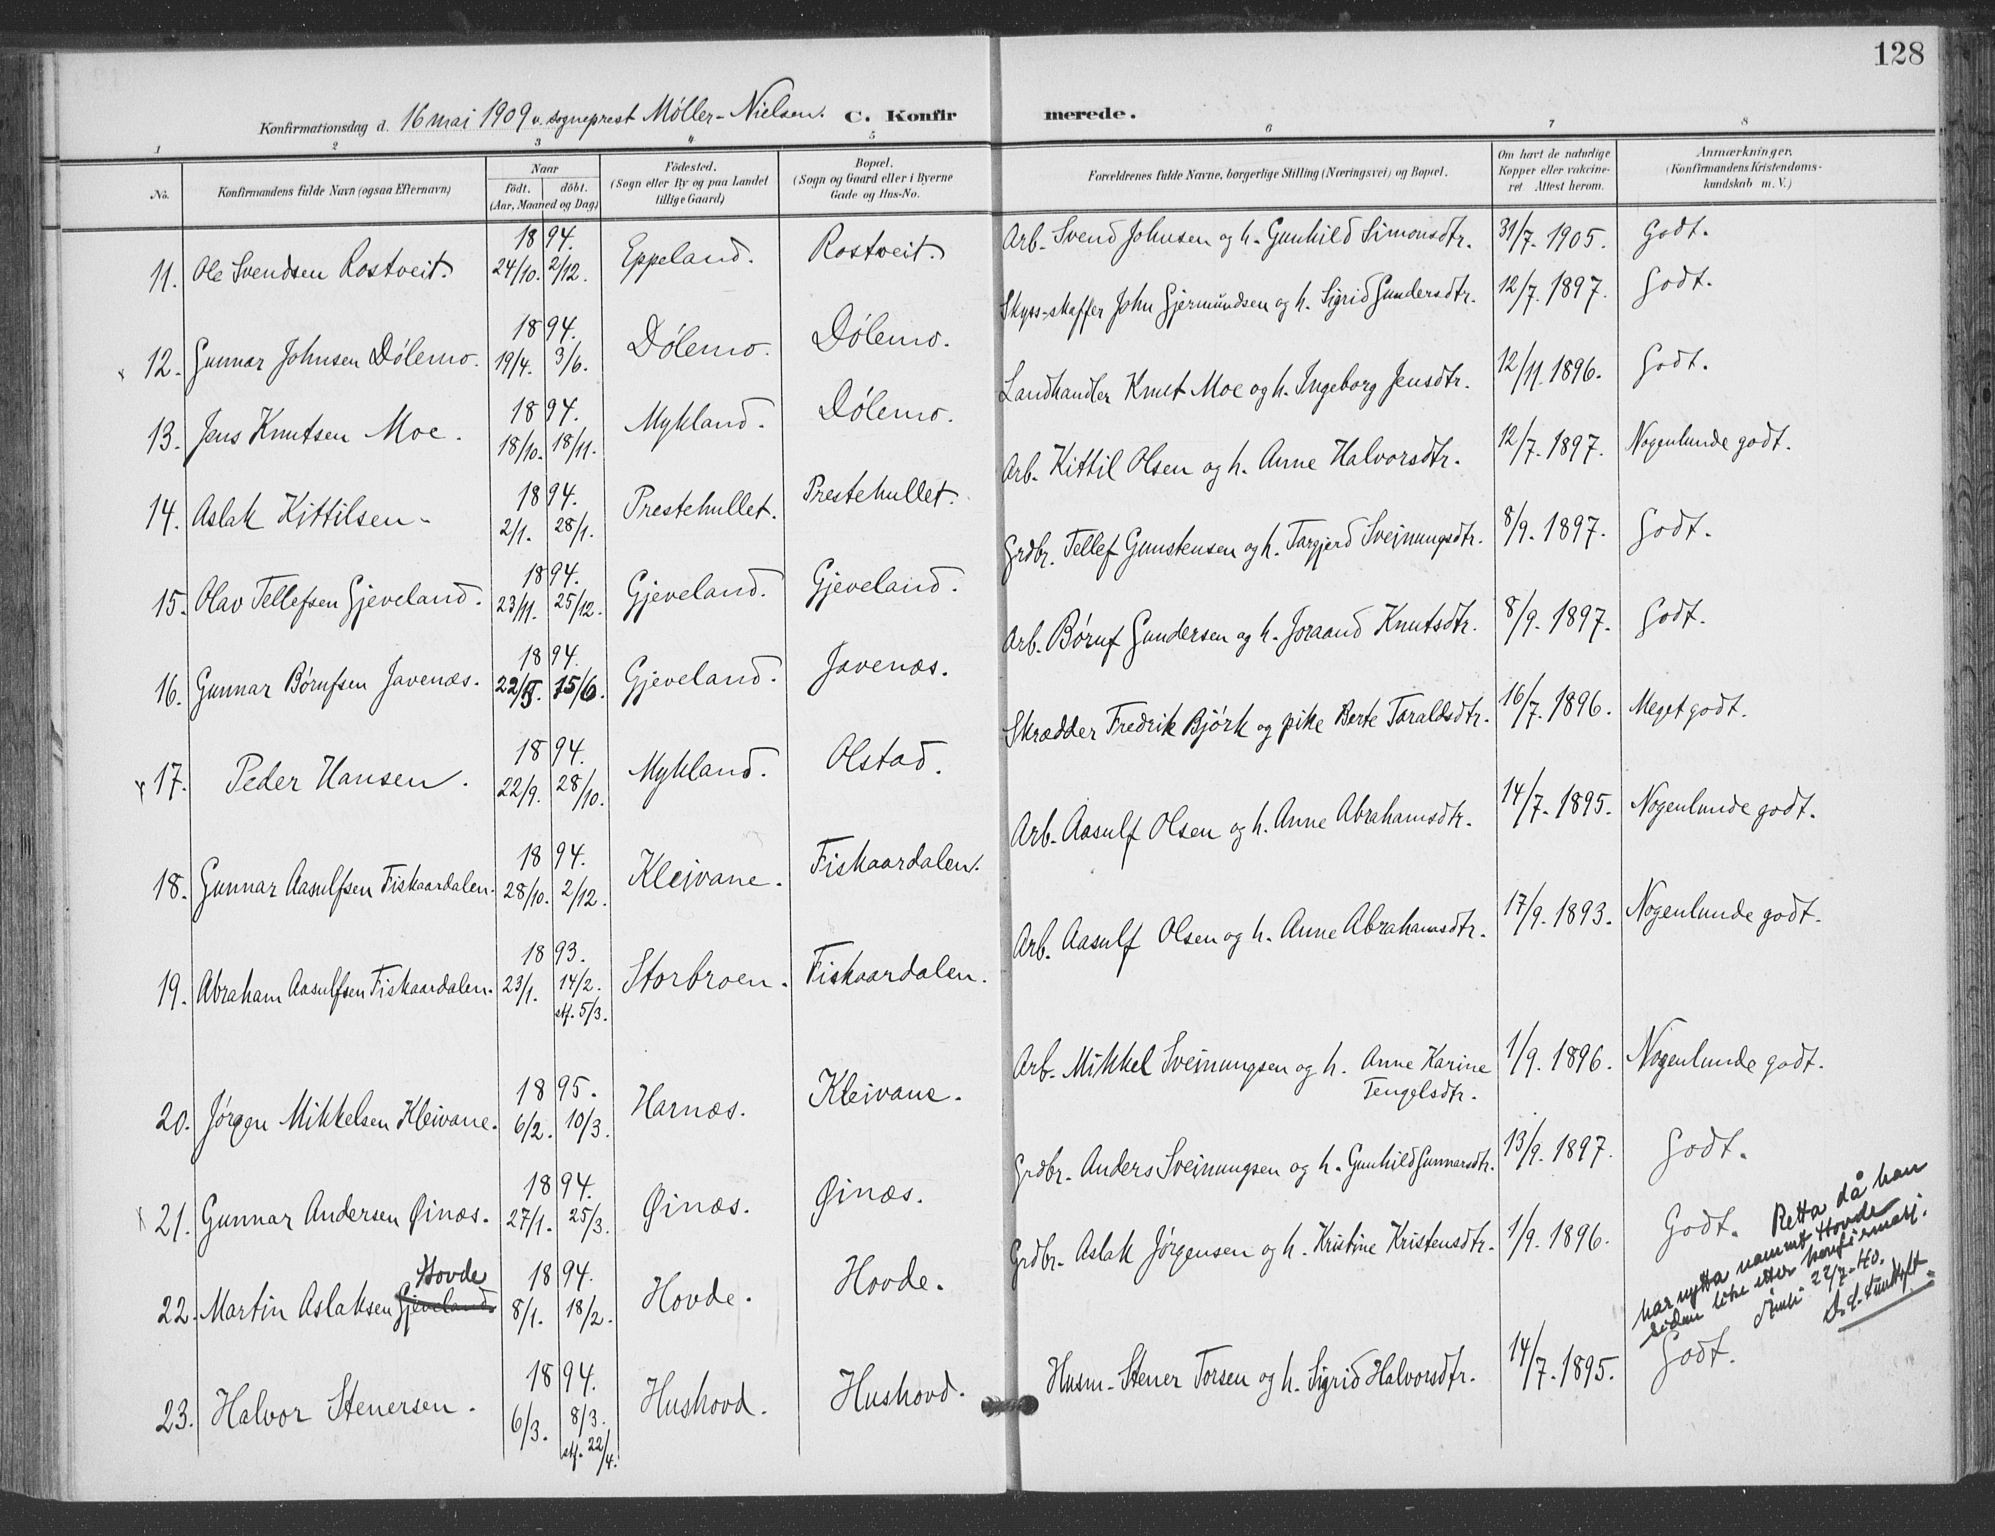 128
Konfirmationsdag d. 16 mai 1909 v. sogneprest Møller-Nielsen. C. Konfirmerede.
1 2 3 4 5 6 7 8
No. Konfirmandens fulde Navn (ogsaa Efternavn) Naar født. døbt. (Aar, Maaned og Dag) Födested. (Sogn eller By og paa Landet tillige Gaard) Bopæl. (Sogn og Gaard eller i Byerne Gade og Hus-No. Forældrenes fulde Navne, borgerlige Stilling (Næringsvei) og Bopæl. Om havt de naturlige Kopper eller vakcineret Attest herom. Anmærkninger. (Konfirmandens Kristendomskundskab m. V.)
11. Ole Svendsen Rostveit. 1894. 24/10. 2/12. Eppeland. Rostveit. Arb. Svend Johnsen og h. Gunhild Simonsdtr. 31/7. 1905. Godt.
12. Gunnar Johnsen Dölemo. 1894. 19/4. 3/6. Dölemo. Dölemo. Skyss-skaffer John Gjermundsen og h. Sigrid Gundersdtr. 12/7. 1897. Godt.
13. Jens Knutsen Moe. 1894. 18/10. 18/11. Mykland. Dölemo. Landhandler Knut Moe og h. Ingeborg Jensdtr. 12/11. 1896. Godt.
14. Aslak Kittilsen. 1894. 2/1. 28/1. Prestehullet. Prestehullet. Arb. Kittil Olsen og h. Anne Halvorsdtr. 12/7. 1897. Nogenlunde godt.
15. Olav Tellefsen Gjeveland. 1894. 23/11. 25/12. Gjeveland. Gjeveland. Grdbr. Tellef Gunstensen og h. Targjerd Sveinungsdtr. 8/9. 1897. Godt.
16. Gunnar Börufsen Javenæs. 1894. 22/5. 15/6. Gjeveland. Javenæs. Arb. Böruf Gundersen og h. Joraand Knutsdtr. 8/9. 1897. Godt.
17. Peder Hansen. 1894. 22/9. 28/10. Mykland. Olstad. Skrædder Fredrik Björk og pike Berte Taraldsdtr. 16/7. 1896. Meget godt.
18. Gunnar Aasulfsen Fiskaardalen. 1894. 28/10. 2/12. Kleivane. Fiskaardalen. Arb. Aasulf Olsen og h. Anne Abrahamsdtr. 14/7. 1895. Nogenlunde godt.
19. Abraham Aasulfsen Fiskaardalen. 1893. 23/1. 14/2. stf. 5/3. Storbroen. Fiskaardalen. Arb. Aasulf Olsen og h. Anne Abrahamsdtr. 17/9. 1893. Nogenlunde godt.
20. Jörgen Mikkelsen Kleivane. 1895. 6/2. 10/3. Harnæs. Kleivane. Arb. Mikkel Sveinungsen og h. Anne Karine Tengelsdtr. 1/9. 1896. Nogenlunde godt.
21. Gunnar Andersen Øinæs. 1894. 27/1. 25/3. Øinæs. Øinæs. Grdbr. Anders Sveinungsen og h. Gunhild Gunnarsdtr. 13/9. 1897. Godt.
22. Martin Aslaksen Gjeveland. Hovde 1894. 8/1. 18/2. Hovde. Hovde. Grdbr. Aslak Jörgensen og h. Kristine Kristensdtr. 1/9. 1896. Godt. Retta då han
har nytta namnet Hovde
sidan like etter konfirmasj.
Åmli 22/7-40.
23. Halvor Stenersen. 1894. 6/3. 8/3. stf. 22/4. Hushovd. Hushovd. Husm. Stener Torsen og h. Sigrid Halvorsdtr. 14/7. 1895. Godt.